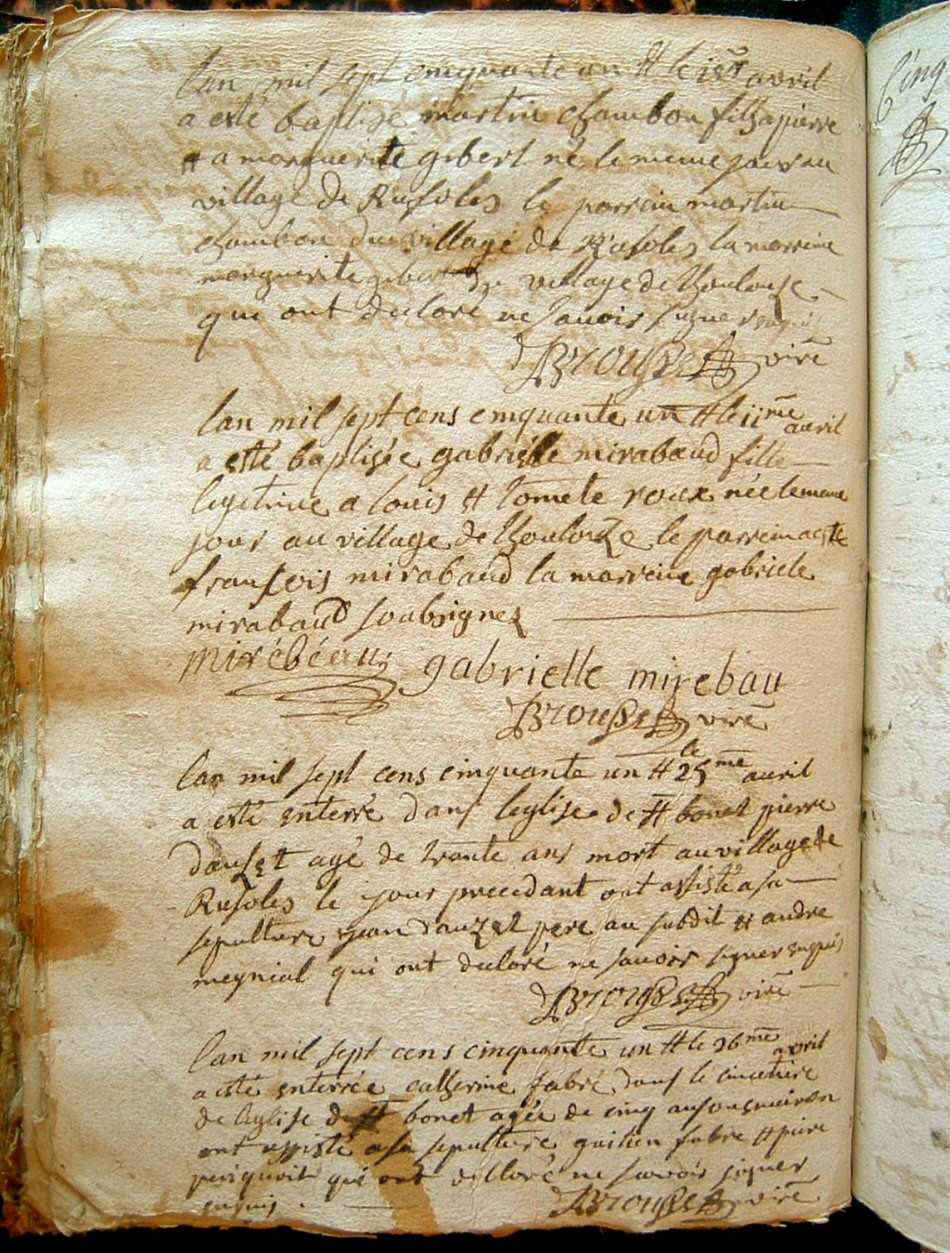 lan mil sept cinquante un et le 1er avril
a esté baptisé martin chambon fils a pierre
et a marguerite gibert né le meme jour au
village de Rusoles le parrein martin
chambon du village de Rusoles la marreine
marguerite gibert du village de Thoulouse
qui ont declaré ne savoir signer
Brousset vire
lan mil sept cens cinquante un et le 11me avril
a esté baptisée gabrielle mirabaud fille
legitime a louis et tomete roux née le meme
jour au village de Thoulouze le parrein a esté
françois mirabaud la marreine gabriele
mirabaud soubsignes
mirebéau gabrielle mirebau
Brousset vire
lan mil sept cens cinquante un et le 25me avril
a esté enterré dans leglise de st bonet pierre
dauzet agé de trante ans mort au village de
Rusoles le jour precedant ont assisté a sa
sepulture jean dauzet pere au subdit et andre
meynial qui ont declaré ne savoir signer enquis
Brousset vire
lan mil sept cens cinquante un et le 26me avril
a esté enterrée catherine fabre dans le cimetiere
de leglise de st bonet agée de cinq ans ou environ
ont assisté a sa sepulture fabre et
qui ont declaré ne savoir signer
enquis
Brousset vire
Cinq